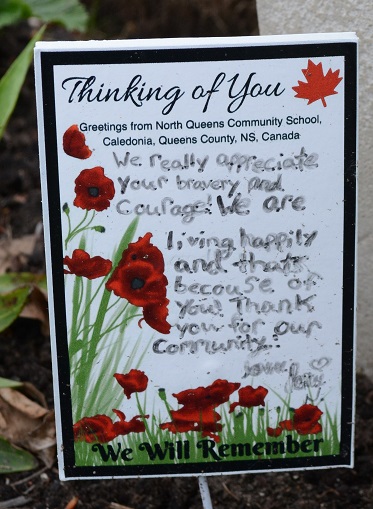 Thinking of You
Greetings from North Queens Community School,
Caledonia, Queens County, NS, Canada
We really appreciate
your bravery and
Courage! We are
living happily
and thats
becouse of
you! Thank
you for our
community.
We Will Remember